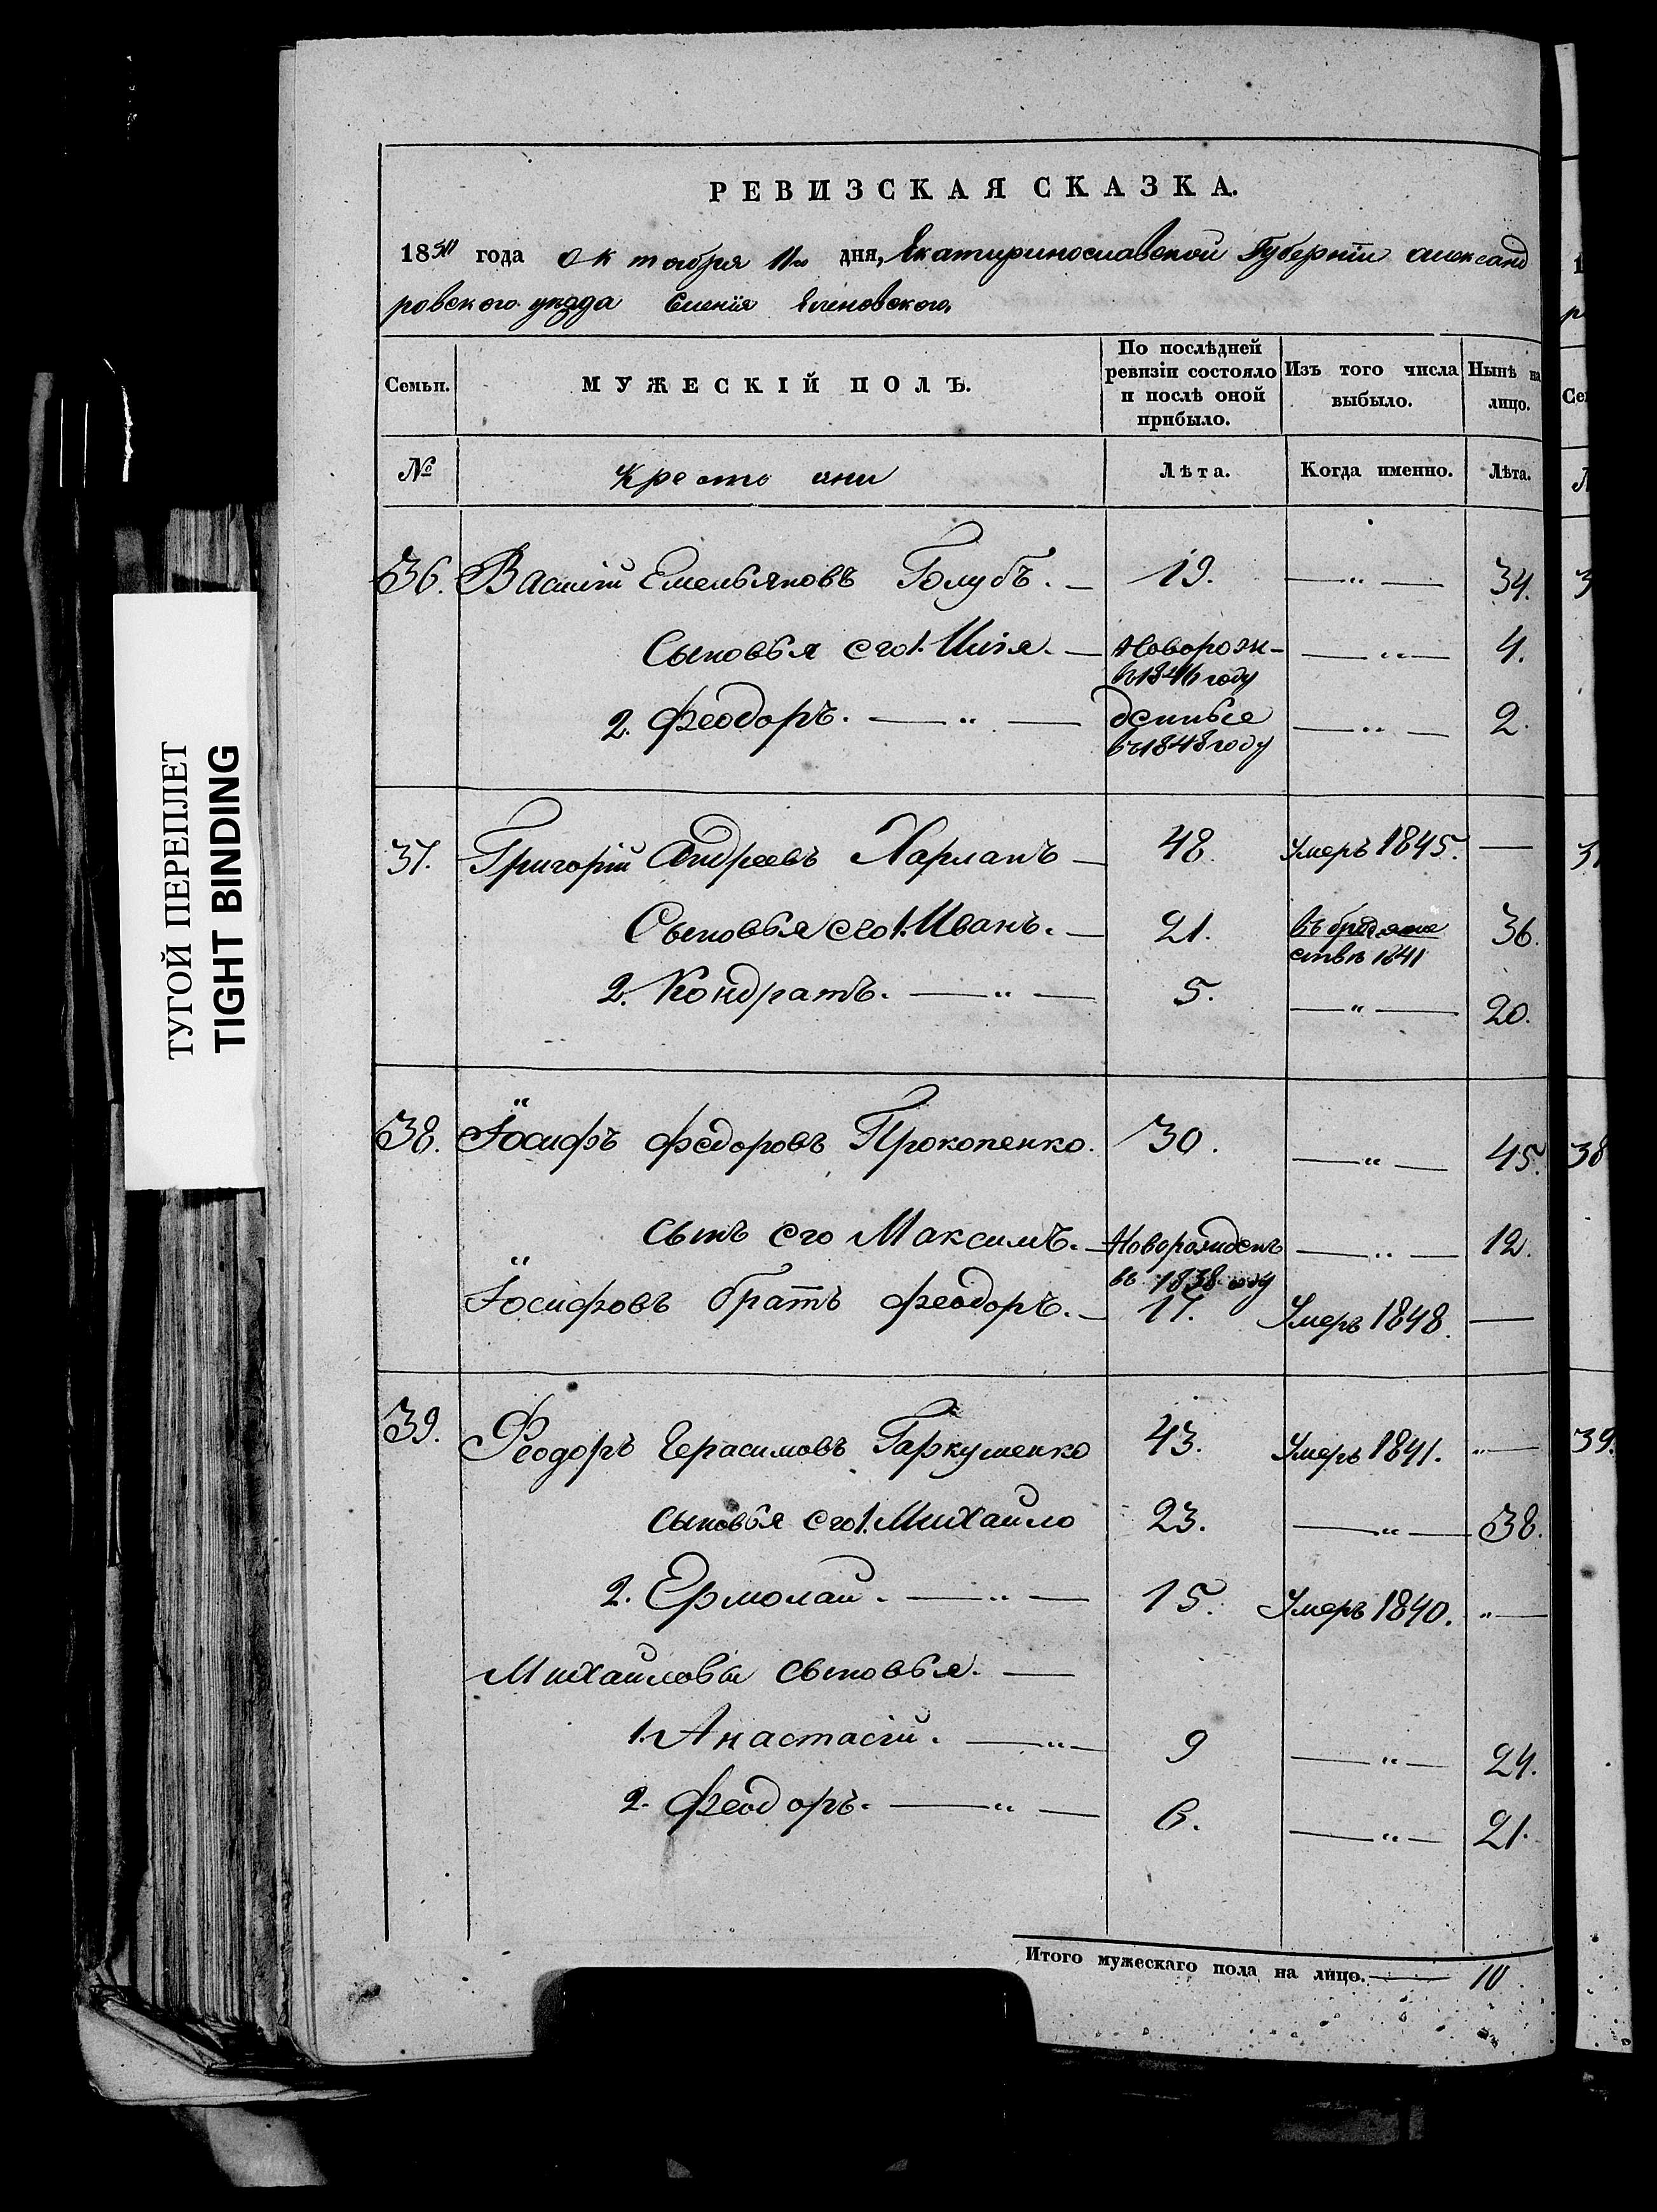 ТУГОЙ ПЕРЕПЛЕТ
TIGHT BINDING
РЕВИЗСКАЯ СКАЗКА.
1850 года октября 11го дня, Екатиринославской Губернии александ
ровского уезда Селенія Еленовского.
Семьи. МУЖЕСКІЙ ПОЛЪ. По послѣдней ревизіи состояло и послѣ оной прибыло. Изъ того числа выбыло. Нынѣ на лицо.
№ Крестьяни Лѣта. Когда именно. Лѣта.
36. Василій Емельяновъ Голубъ. — 19. — " — 34.
Сыновья его 1. Илія. — Новорож- — " — 4.
въ 1846 году
2. Феодоръ. — " — денные — " — 2.
въ 1848 году
37. Григорій Андреевъ Харланъ — 48. Умеръ 1845. —
Сыновья его 1. Иванъ. — 21. 36.
1841
2. Кондратъ. — " — 5. — " — 20.
38. Іосифъ Федоровъ Прокопенко. 30. — " — 45.
сынъ его Максимъ. — Новорожденъ — " — 12.
въ 1838 году
Іосифовъ братъ Феодоръ. — 17. Умеръ 1848. —
39. Феодоръ Герасимовъ Гаркушенко 43. Умеръ 1841. " —
сыновья его 1. Михайло 23. — " — 38.
2. Ермолай. — " — 15. Умеръ 1840. " —
Михайловы сыновья. —
1. Анастасій. — " — 9 — " — 24.
2. Феодоръ. — " — 6. — " — 21.
Итого мужескаго пола на лицо. — 10.